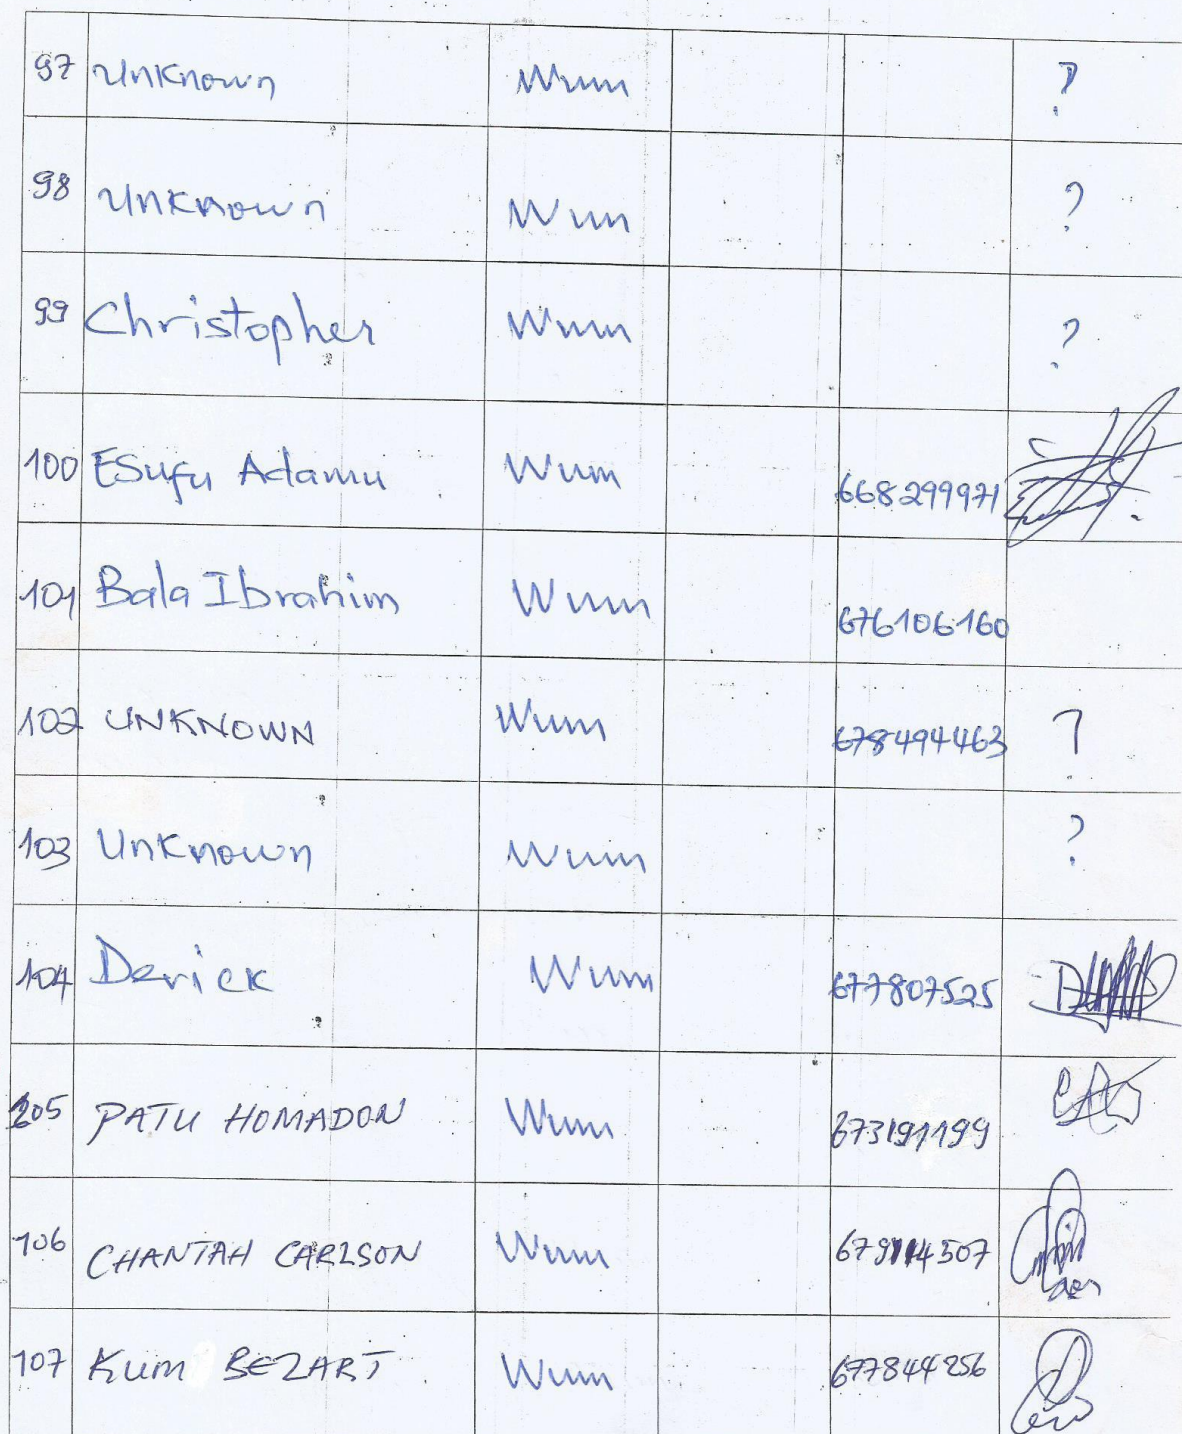 97 Unknown Wum ?
98 Unknown Wum ?
99 Christopher Wum ?
100 ESufu Adamu Wum 668299971
101 Bala Ibrahim Wum 676106160
102 UNKNOWN Wum 678494463 ?
103 Unknown Wum ?
104 Derick Wum 677807525
205 PATU HOMADON Wum 673191199
106 CHANTAH CARLSON Wum 679114507
107 Kum BEZART Wum 677844256